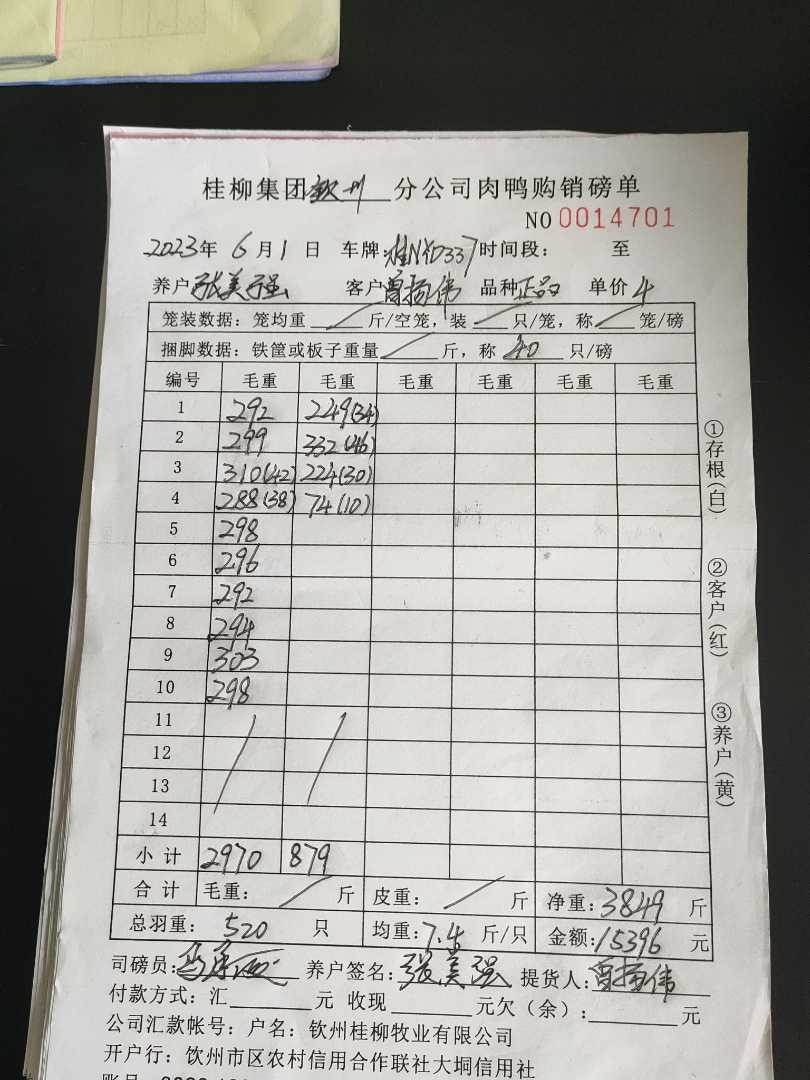 桂柳集团钦州分公司肉鸭购销磅单
NO 0014701
2023年 6月1日 车牌: 桂NYD337 时间段: 至
养户 张美强 客户 曾扬伟 品种 正品 单价 4
笼装数据: 笼均重 / 斤/空笼, 装 / 只/笼, 称 / 笼/磅
捆脚数据: 铁筐或板子重量 / 斤, 称 40 只/磅
编号 毛重 毛重 毛重 毛重 毛重 毛重
1 292 249(34)
2 299 332(46)
3 310(42) 224(30)
4 288(38) 74(10)
5 298
6 296
7 292
8 294
9 303
10 298
11
12
13
14
小计 2970 879
合计 毛重: / 斤 皮重: / 斤 净重: 3849 斤
总羽重: 520 只 均重: 7.4 斤/只 金额: 15396 元
司磅员: 养户签名: 张美强 提货人: 曾扬伟
付款方式: 汇 元 收现 元欠(余): 元
公司汇款帐号: 户名: 钦州桂柳牧业有限公司
开户行: 钦州市区农村信用合作联社大垌信用社
①存根(白)
②客户(红)
③养户(黄)